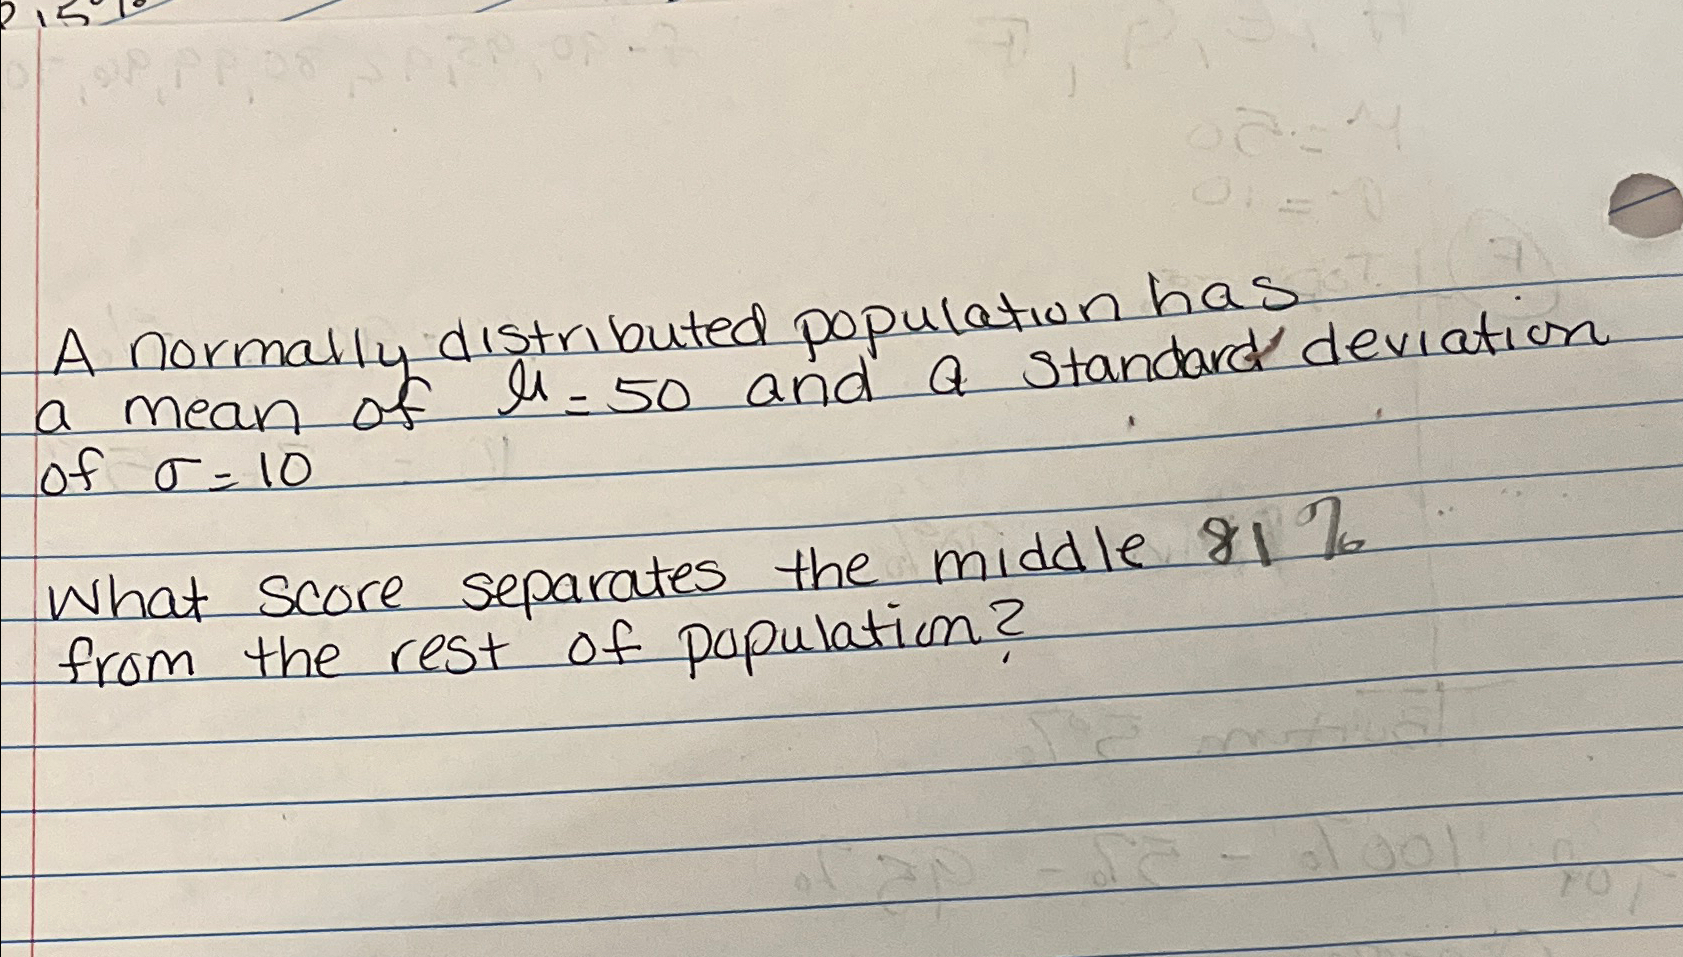 A normally distributed population has
a mean of μ = 50 and a standard deviation
of σ = 10
What score separates the middle 81%
from the rest of population?